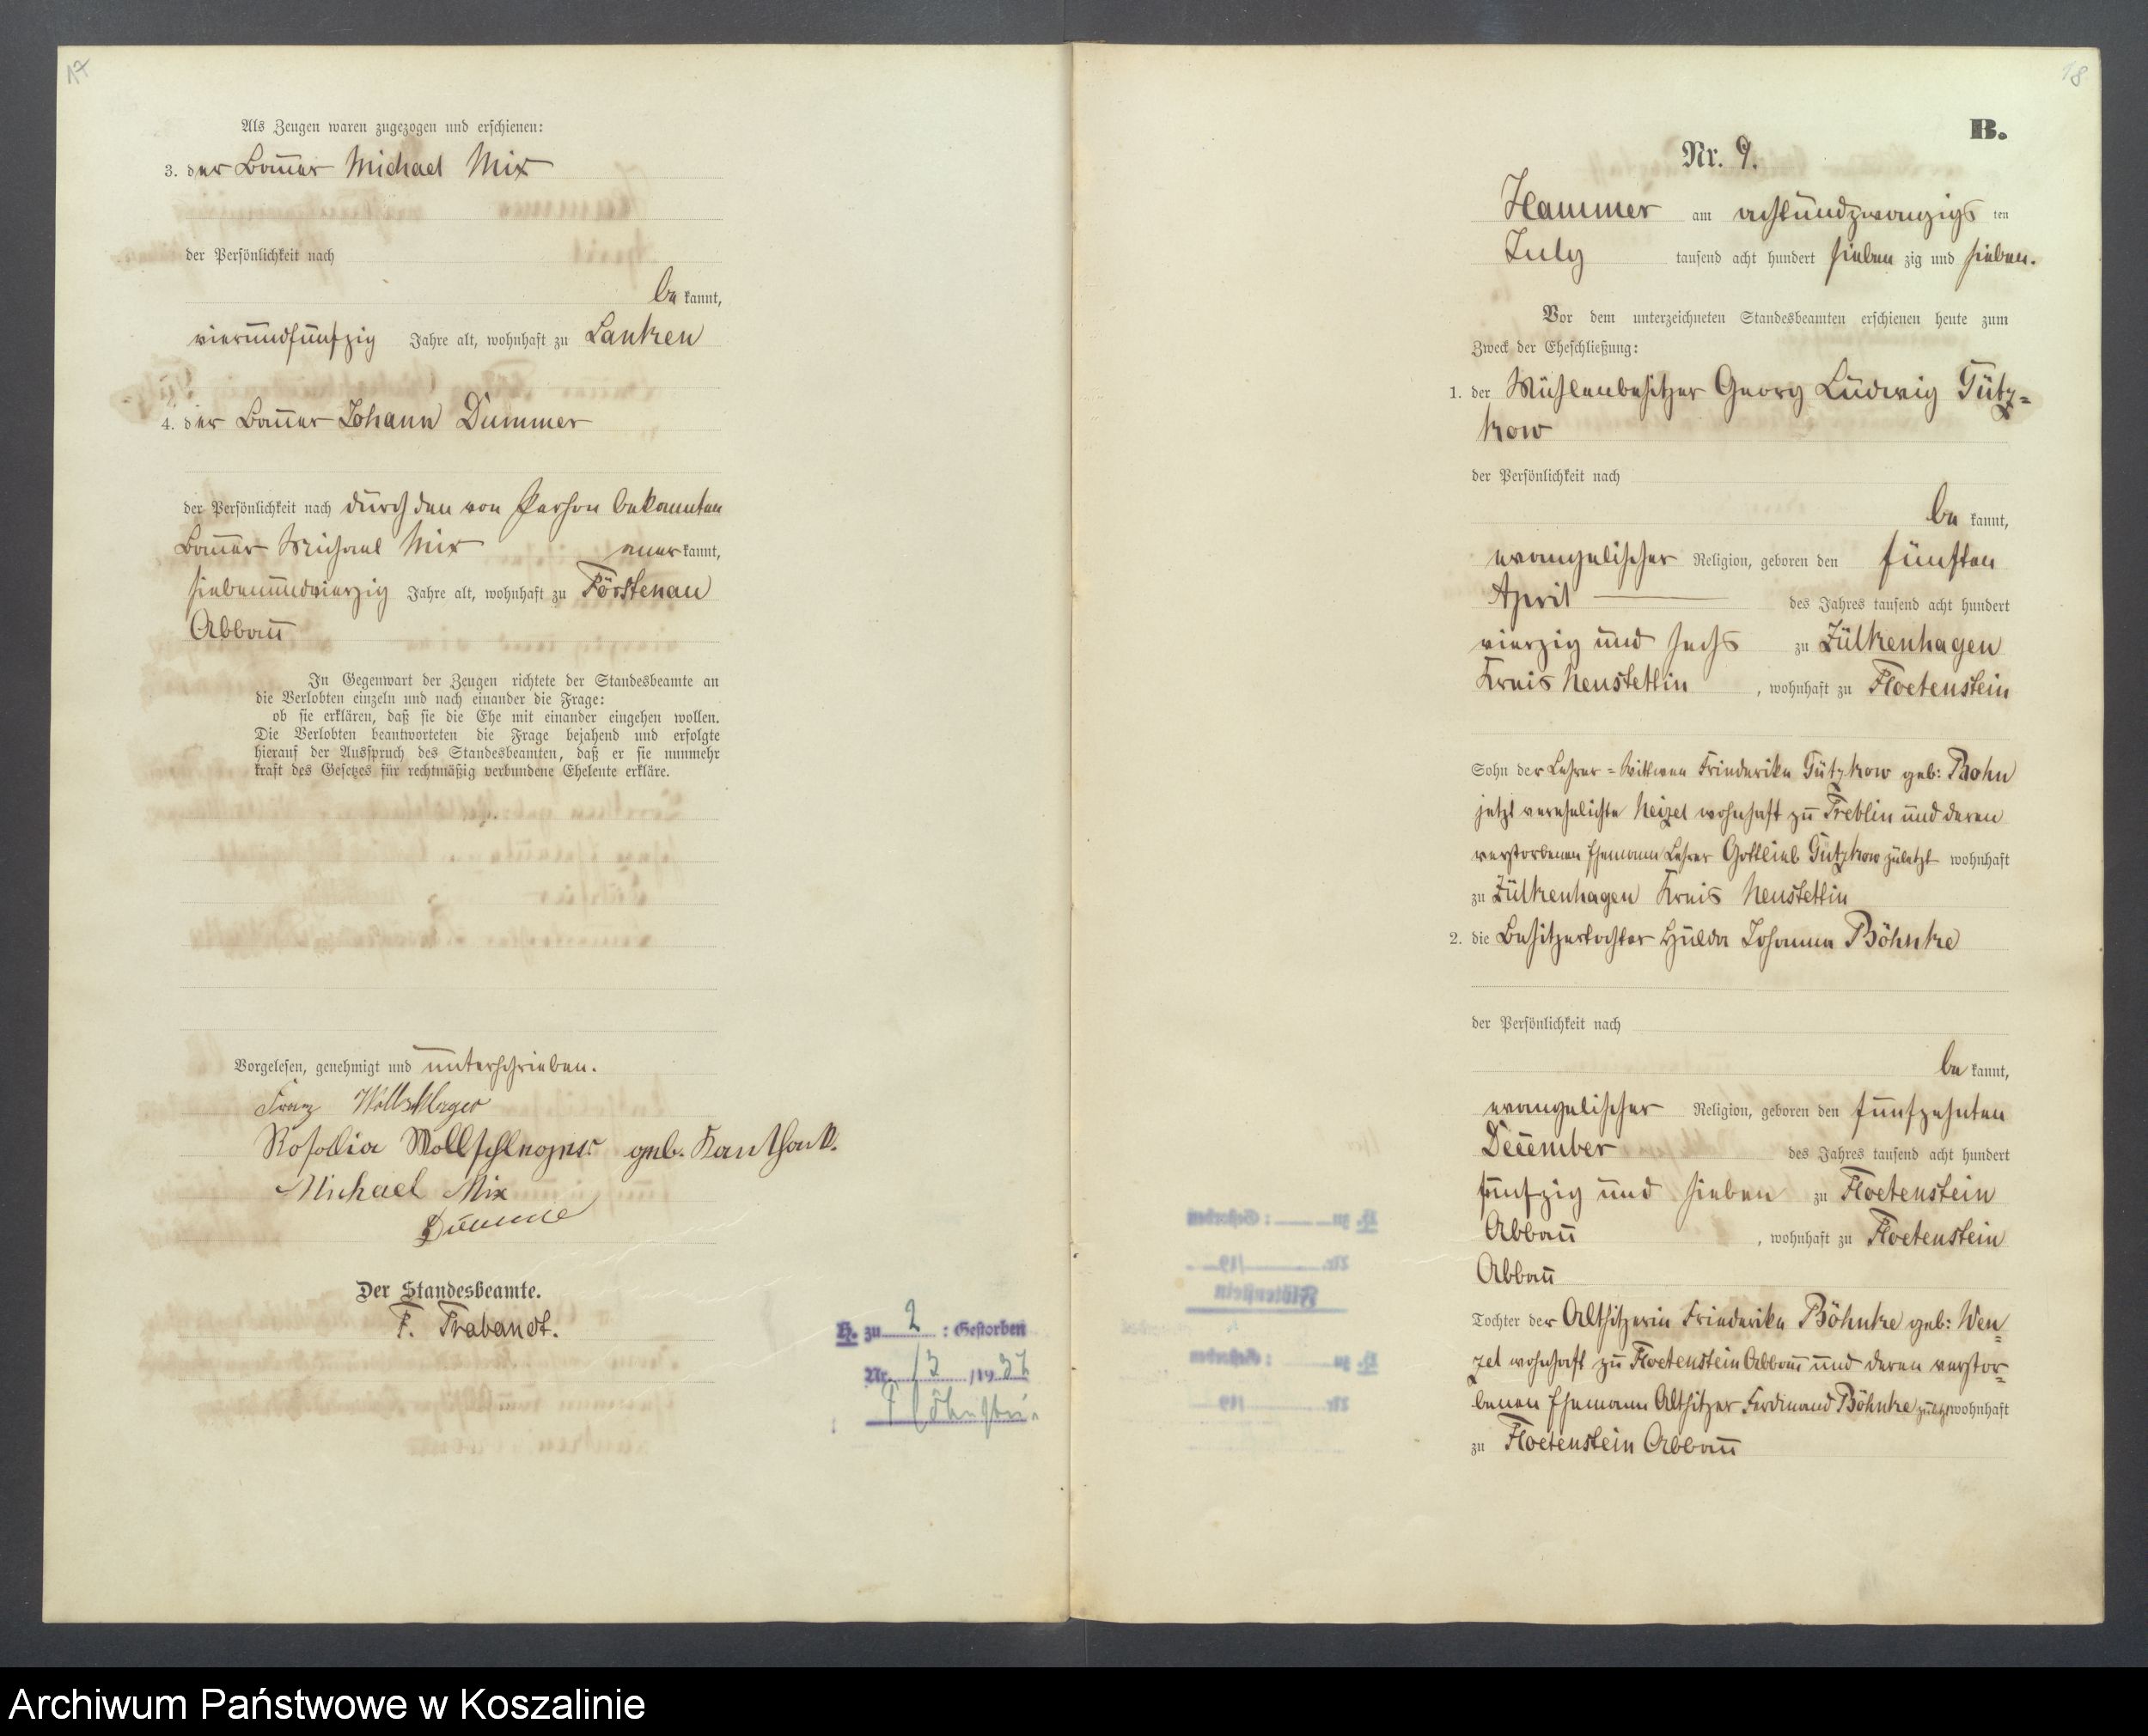 17
Als Zeugen waren zugezogen und erschienen:
3. der Bauer Michael Mix
der Persönlichkeit nach
be kannt,
vierundfünfzig Jahre alt, wohnhaft zu Lanken
4. der Bauer Johann Dummer
der Persönlichkeit nach durch den von Person bekannten
Bauer Michael Mix aner kannt,
siebenundvierzig Jahre alt, wohnhaft zu Förstenau
Abbau
In Gegenwart der Zeugen richtete der Standesbeamte an
die Verlobten einzeln und nach einander die Frage:
ob sie erklären, daß sie die Ehe mit einander eingehen wollen.
Die Verlobten beantworteten die Frage bejahend und erfolgte
hierauf der Ausspruch des Standesbeamten, daß er sie nunmehr
kraft des Gesetzes für rechtmäßig verbundene Eheleute erkläre.
Vorgelesen, genehmigt und unterschrieben.
Franz
Rosalia Wollschleger geb.
Michael Mix
Der Standesbeamte.
F. Trabandt.
H. zu 2 : Gestorben
Nr. 13 /19 37
18
B.
Nr. 9.
Hammer am achtundzwanzigs ten
July tausend acht hundert sieben zig und sieben.
Vor dem unterzeichneten Standesbeamten erschienen heute zum
Zweck der Eheschließung:
1. der Mühlenbesitzer Georg Ludwig Gütz=
kow
der Persönlichkeit nach
be kannt,
evangelischer Religion, geboren den fünften
April des Jahres tausend acht hundert
vierzig und sechs zu Zülkenhagen
Kreis Neustettin, wohnhaft zu Floetenstein
Sohn der Lehrer=Wittwe Friederike Gützkow geb: Bohn
jetzt verehelichte wohnhaft zu Treblin und deren
verstorbenen Ehemann Lehrer Gottlieb Gützkow zuletzt wohnhaft
zu Zülkenhagen Kreis Neustettin
2. die Besitzertochter Hulda Johanna Böhnke
der Persönlichkeit nach
be kannt,
evangelischer Religion, geboren den fünfzehnten
December des Jahres tausend acht hundert
fünfzig und sieben zu Floetenstein
Abbau, wohnhaft zu Floetenstein
Abbau
Tochter der Altsitzerin Friederike Böhnke geb: Wen=
zel wohnhaft zu Floetenstein Abbau und deren verstor=
benen Ehemann Altsitzer Ferdinand Böhnke zuletzt wohnhaft
zu Floetenstein Abbau
Archiwum Państwowe w Koszalinie